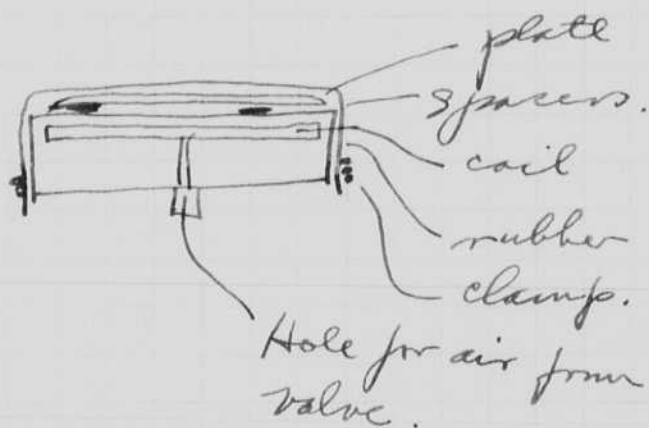 plate
spacers.
coil
rubber
clamp.
Hole for air from
valve.